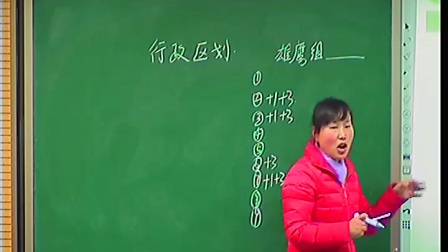 行政区划. 雄鹰组
①
②+1+3
③+1+3
④
⑤
⑥+3
⑦+1+3
⑧
⑨